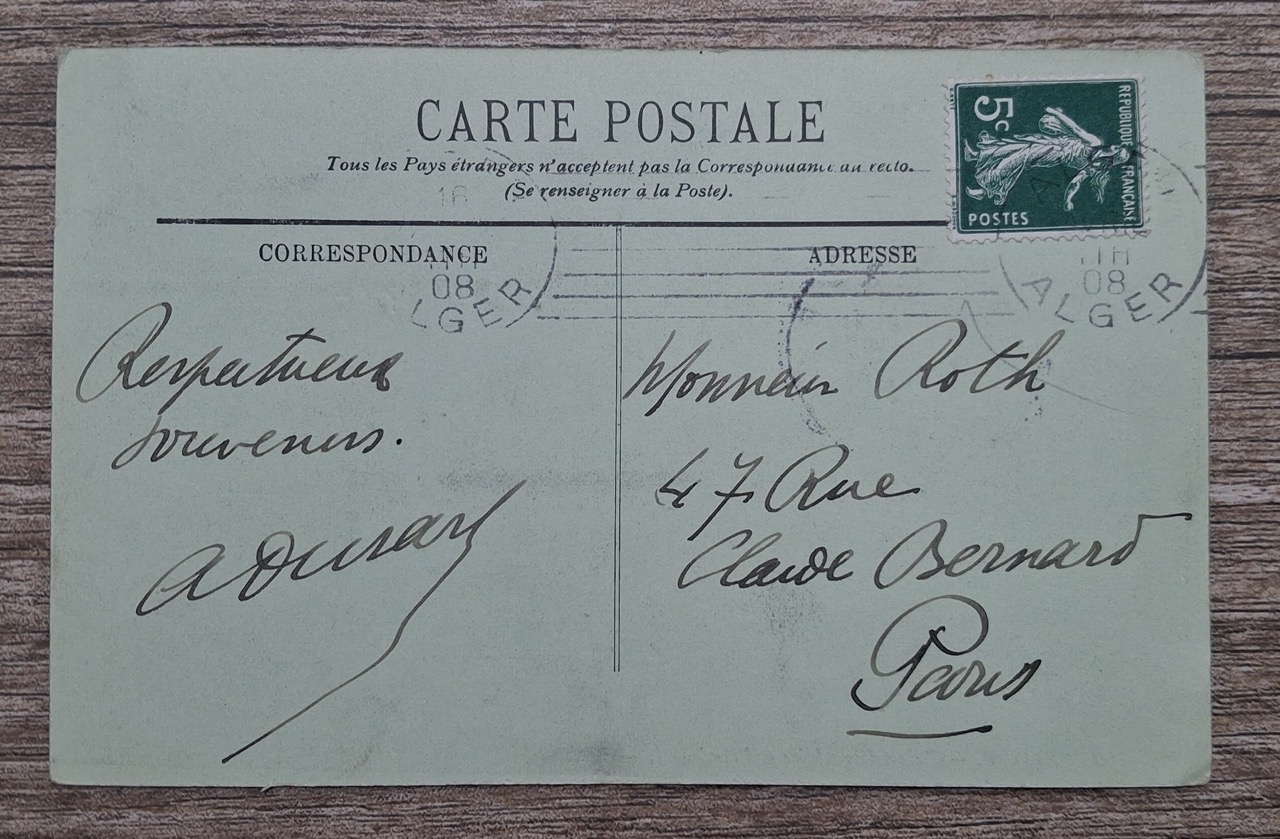 CARTE POSTALE
Tous les Pays étrangers n'acceptent pas la Correspondance au recto.
(Se renseigner à la Poste).
5c
REPUBLIQUE FRANÇAISE
POSTES
CORRESPONDANCE
ADRESSE
16
08
LGER
08
ALGER
Respectueux
souvenirs.
A Dusart
Monsieur Roth
47 Rue
Claude Bernard
Paris